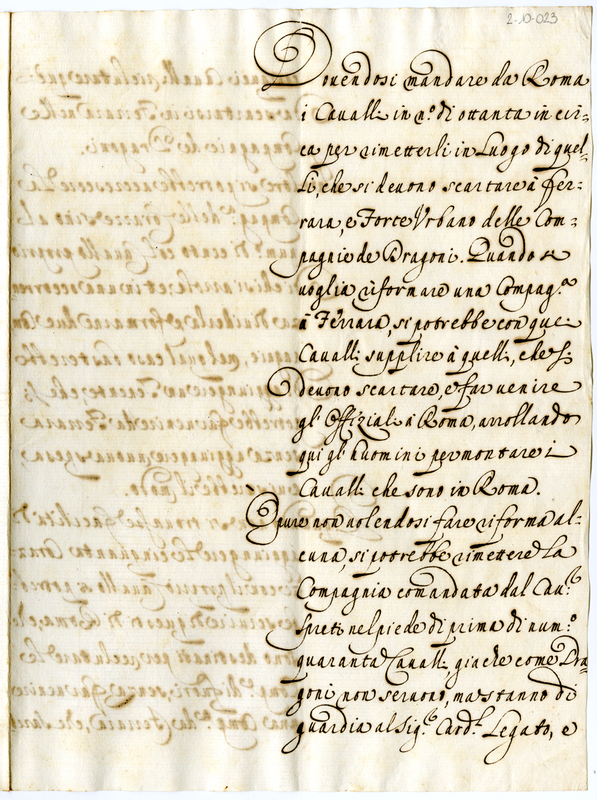 2-10-023
Dovendosi mandare da Roma
i Cavalli in n.º di ottanta in cir=
ca per rimetterli in Luogo di quel=
li, che si devono scartare à Fer=
rara, e Forte Urbano delle Com=
pagnie de Dragoni. Quando si
voglia riformare una Compag.ª
à Ferrara, si potrebbe con que
Cavalli supplire à quelli, che si
devono scartare, e far venire
gl'Offiziali à Roma, arrollando
qui gl'huomini per montare i
Cavalli che sono in Roma.
Ò pure non volendosi fare riforma al=
cuna, si potrebbe rimettere la
Compagnia comandata dal Cav.r
Spreti nel piede di prima di num.º
quaranta Cavalli, già che come Dra
goni non servono, ma stanno di
guardia al Sig.r Card.l Legato, e